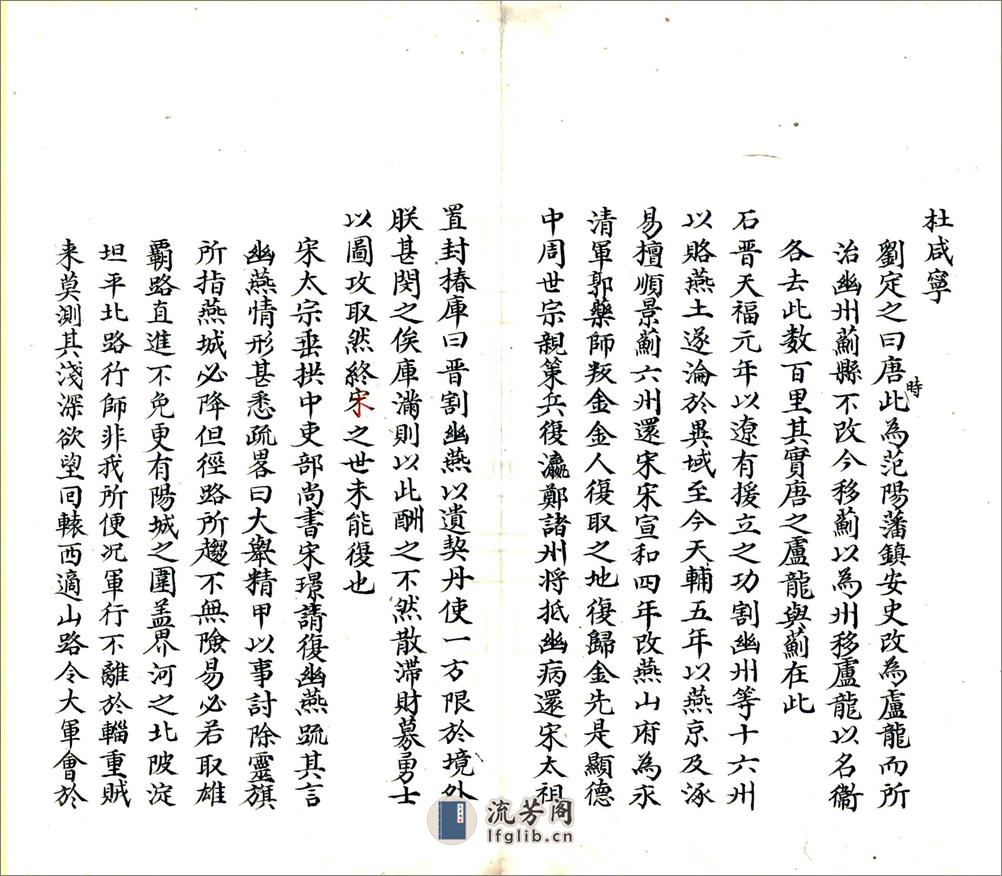 杜咸寧
劉定之曰唐時此為范陽藩鎮安史改為盧龍而所
治幽州薊縣不改今移薊以為州移盧龍以名衞
各去此数百里其實唐之盧龍與薊在此
石晉天福元年以遼有援立之功割幽州等十六州
以賂燕土遂淪於異域至今天輔五年以燕京及涿
易檀順景薊六州還宋宋宣和四年改燕山府為永
清軍郭藥師叛金金人復取之地復歸金先是顯德
中周世宗親䇿兵復瀛鄭諸州将抵幽病還宋太祖
置封椿庫曰晋割幽燕以遺契丹使一方限於境外
朕甚閔之俟庫滿則以此酬之不然散滞財募勇士
以圖攻取然終宋之世未能復也
宋太宗垂拱中吏部尚書宋璟請復幽燕疏其言
幽燕情形甚悉疏畧曰大舉精甲以事討除靈旗
所指燕城必降但徑路所趨不無險易必若取雄
霸路直進不免更有陽城之圍盖界河之北陂淀
坦平北路行師非我所便况軍行不離於輜重賊
来莫測其淺深欲望囘轅西適山路令大軍會於
流芳阁
lfglib.cn